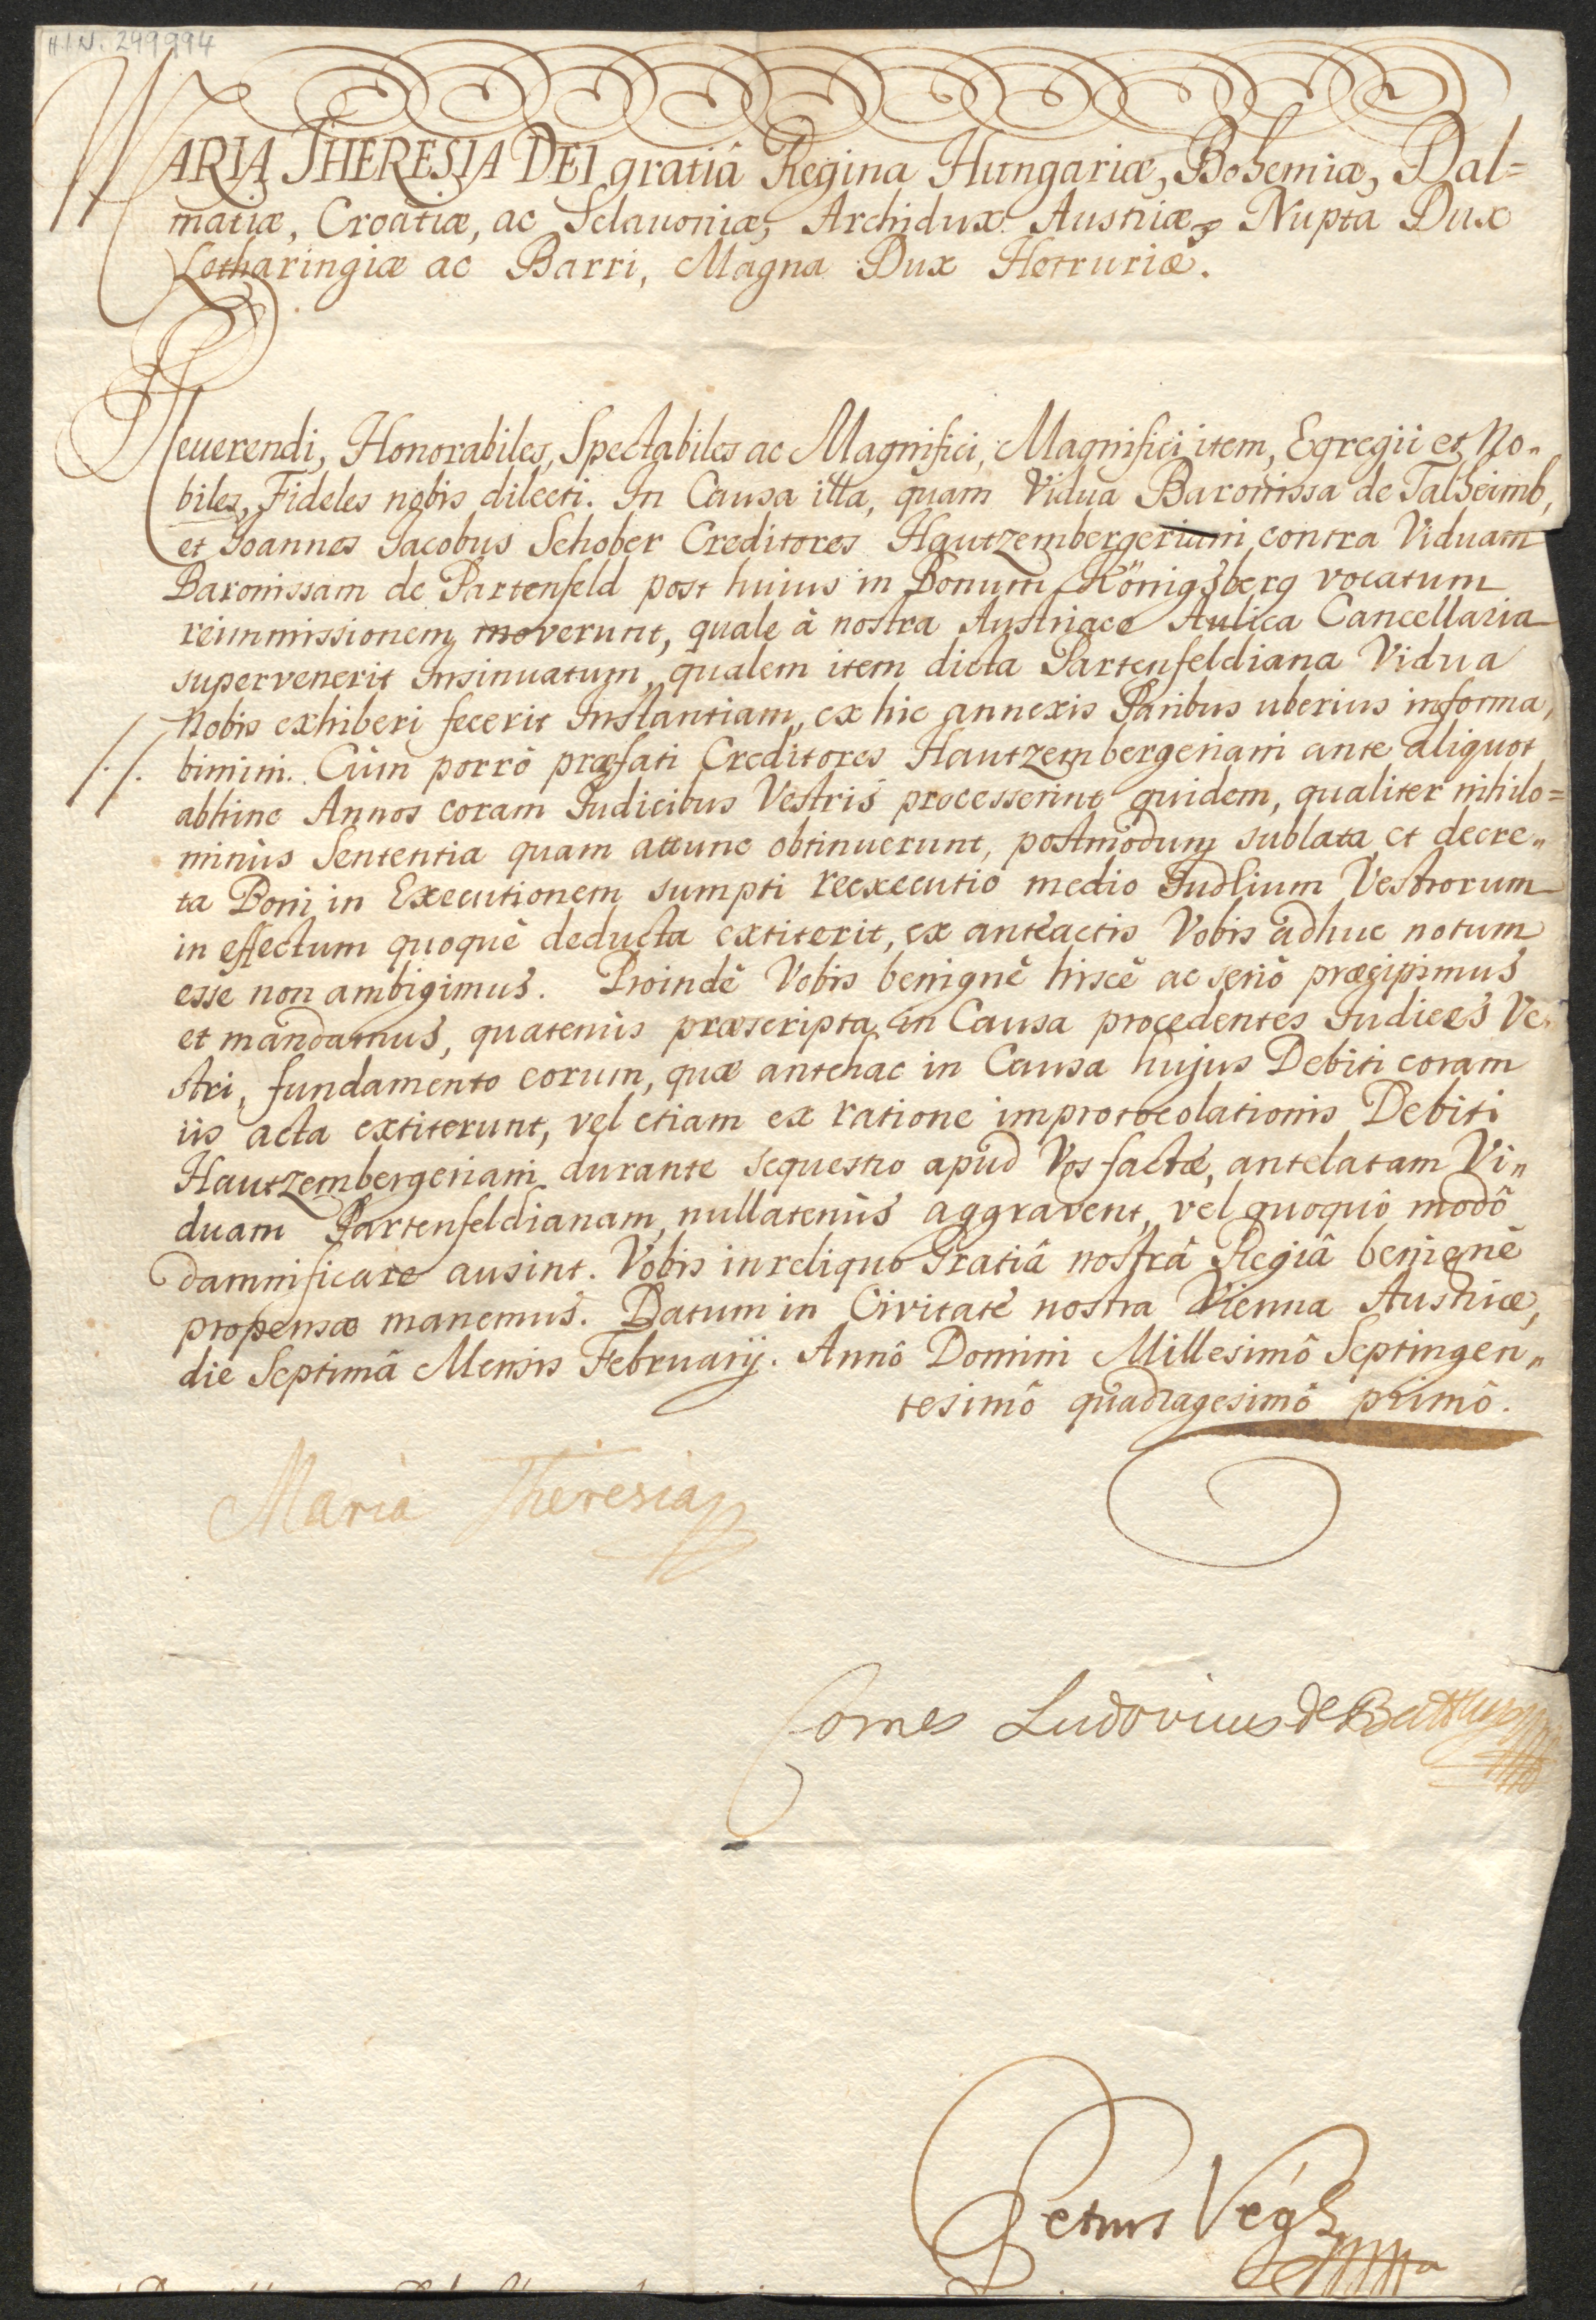 H.I.N. 249994
MARIA THERESIA DEI gratiâ Regina Hungariæ, Bohemiæ, Dal=
matiæ, Croatiæ, ac Sclavoniæ, Archidux Austriæ, Nupta Dux
Lotharingiæ ac Barri, Magna Dux Hetruriæ.
Reuerendi, Honorabiles, Spectabiles ac Magnifici, Magnifici item, Egregii et No„
biles, Fideles nobis dilecti. In Causa illa, quam Vidua Baronissa de Talheimb,
et Joannes Jacobus Schober Creditores Hautzembergeriani contra Viduam
Baronissam de Partenfeld post huius in Bonum Königsberg vocatum
reimmissionem moverunt, quale à nostra Austriaco Aulica Cancellaria
supervenerit Insinuatum, qualem item dicta Partenfeldiana Vidua
Nobis exhiberi fecerit Instantiam, ex hic annexis Paribus uberius informa,
./. bimini. Cùm porrò præfati Creditores Hautzembergeriani ante aliquot
abhinc Annos coram Judicibus Vestris processerint quidem, qualiter nihilo=
minùs Sententia quam attunc obtinuerunt, postmodum sublata, et decre„
ta Boni in Executionem sumpti reexecutio medio Judlium Vestrorum
in effectum quoquè deducta extiterit, ex anteactis Vobis adhuc notum
esse non ambigimus. Proindè Vobis benignè hiscè ac seriò præcipimus
et mandamus, quatenùs præscripta in Causa procedentes Judices Ve„
stri, fundamento eorum, quæ antehac in Causa hujus Debiti coram
iis acta extiterunt, vel etiam ex ratione improtocolationis Debiti
Hautzembergeriani durante sequestro apud Vos factæ, antelatam Vi„
duam Partenfeldianam nullatenùs aggravent, vel quoquô modô
damnificare ausint. Vobis in reliquo Gratiâ nostrâ Regiâ benignè
propensæ manemus. Datum in Civitate nostra Vienna Austriæ,
die Septimâ Mensis Februarij. Annô Domini Millesimô Septingen„
tesimô quadragesimô primô.
Maria Theresia
Comes Ludovicus de Batthyan
Petrus Végh